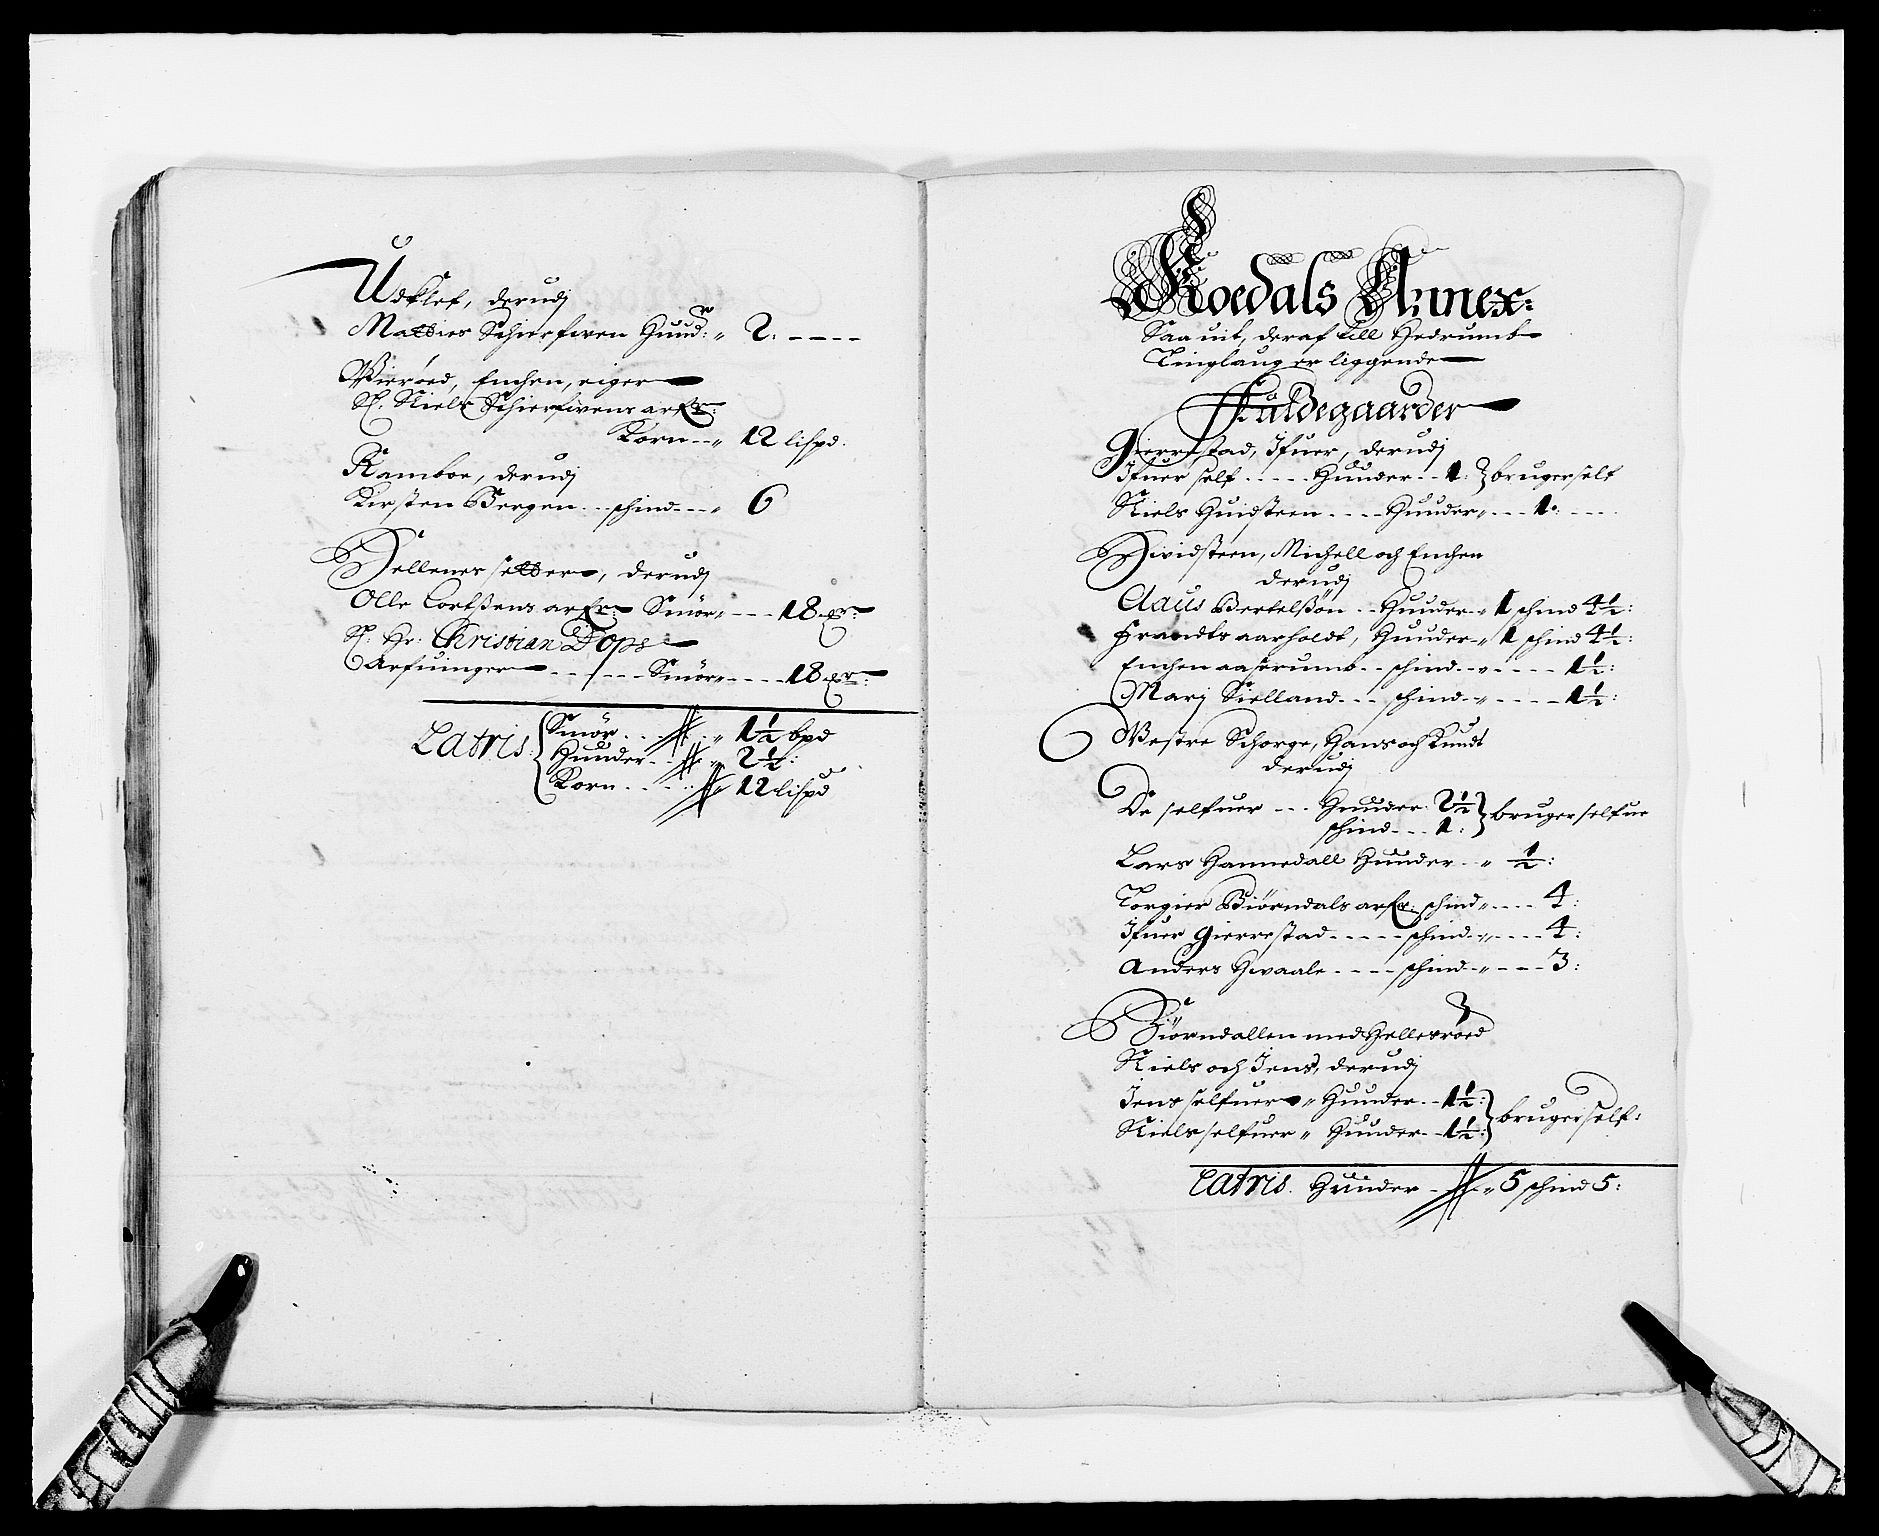 Udklef, derudj
Matties Schierfven Huud: „ 2: ----
Vierøed, Enchen, eiger
Sl. Niels Schierfvens arfr:
Korn -- „ 12 lispd:
Ramboe, derudj
Kirsten Bergen -- schind --- „ 6
Hellenessetter, derudj
Olle Lortsens arfr: Smør „ --- 18
Sl: Hr: Christian Dops
Arfuinger --- Smør „ ---- 18
Latris Smør . . . „ 1½ bpd
Huuder . . „ 2½:
Korn . . . . 12 lispd
Koedals Annex:
Saauit, deraf till Hedrumb
Tinglaug er liggende
Fuldegaarder
Gierrestad, Ifuer, derudj
Ifuer self ----- Huuder -- 1: bruger self
Niels Huidsteen ---- Huuder „ --- 1: ----
Hvidsteen, Michell och Enchen
derudj
Claus Bertelsøn -- Huuder „ 1 schind 4½:
Frandts aarholdt, Huuder „ 1 schind 4½:
Enchen aaserumb -- schind -- „ ---- 1½:
Marj Sielland --- schind - „ ----- 1½:
Vestre Schorge, Hans och Knudt
derudj
De selfuer --- Huuder: 2½ bruger selfue
schind --- 1:
Lars Hannedall Huuder -- „ ½:
Torgier Biørndals arfr: schind „ ---- 4:
Ifuer Gierrestad ----- schind - „ ---- 4:
Anders Hvaale ---- schind - „ --- 3:
Biørndallen med Hellesrøed
Niels och Jens, derudj
Jens selfuer „ Huuder -- 1½: bruger self:
Niels selfuer „ Huuder -- 1½:
Latris. Huuder -- „ 5 schind 5: